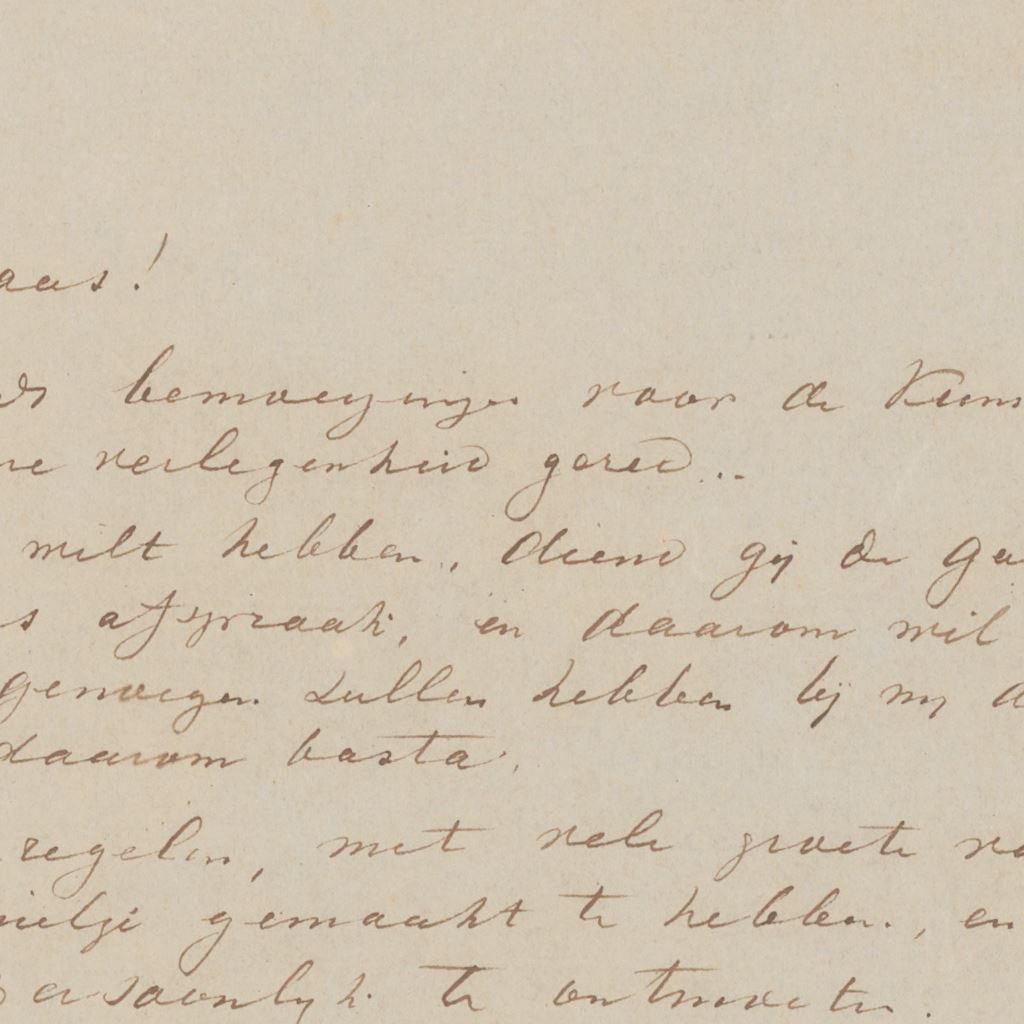 aas!
bemoeyingen voor de Kuns
ne verlegenheid gered..
wilt hebben, diend gij de ga
s afspraak, en daarom wil
genoegen zullen hebben bij mij d
daarom basta.
regelen, met vele groete va
mieltje gemaakt te hebben, en
persoonlijk te ontmoeten.